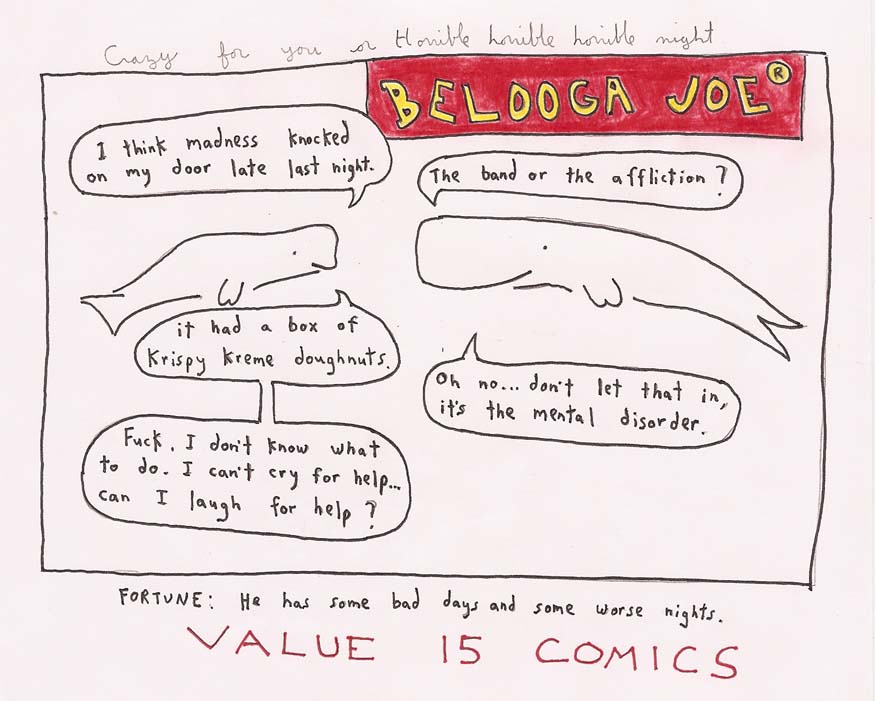 Crazy for you or Horrible horrible horrible night
BELOOGA JOE®
I think madness knocked
on my door late last night.
The band or the affliction?
it had a box of
Krispy Kreme doughnuts.
Oh no... don't let that in,
it's the mental disorder.
Fuck. I don't know what
to do. I can't cry for help...
can I laugh for help?
FORTUNE: He has some bad days and some worse nights.
VALUE 15 COMICS